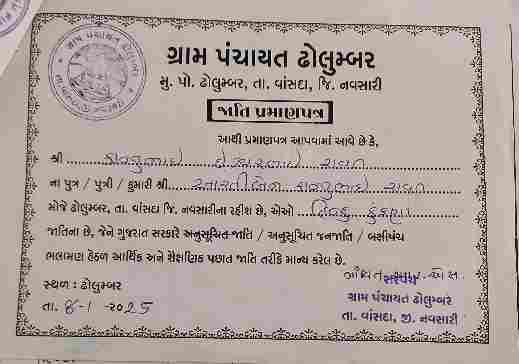 ગ્રામ પંચાયત ઢોલુમ્બર
મુ. પો. ઢોલુમ્બર, તા. વાંસદા, જિ. નવસારી
જાતિ પ્રમાણપત્ર
આથી પ્રમાણપત્ર આપવામાં આવે છે કે,
શ્રી
ના પુત્ર / પુત્રી / કુમારી શ્રી
મોજે ઢોલુમ્બર, તા. વાંસદા જિ. નવસારીના રહીશ છે, એઓ હિન્દુ કુકણા
જાતિના છે, જેને ગુજરાત સરકારે અનુસૂચિત જાતિ / અનુસૂચિત જનજાતિ / બક્ષીપંચ
ભલામણ હેઠળ આર્થિક અને શૈક્ષણિક પછાત જાતિ તરીકે માન્ય કરેલ છે.
સ્થળ : ઢોલુમ્બર
તા. ૬-1-2025
સરપંચ
ગ્રામ પંચાયત ઢોલુમ્બર
તા. વાંસદા, જી. નવસારી